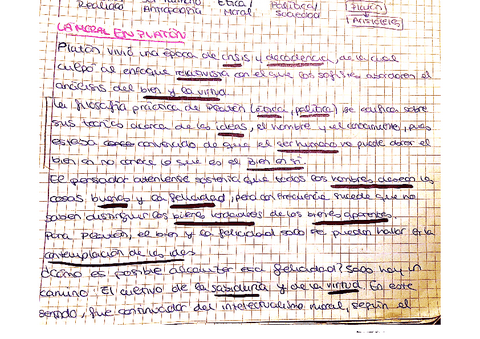 Realidad Antropología Ética / Moral Política / Sociedad Platón
Aristóteles
LA MORAL EN PLATÓN
Platón vivió una época de crisis y decadencia, de la cual
culpó al enfoque relativista con el que los sofistas abordaron el
análisis del bien y la virtud.
La filosofía práctica de Platón (ética, política) se edifica sobre
sus teorías acerca de las ideas, el hombre y el conocimiento, pues
estaba convencido de que el ser humano no puede obrar el
bien si no conoce lo que es el Bien en sí.
El pensador ateniense sostenía que todos los hombres desean las
cosas buenas y la felicidad, pero con frecuencia sucede que no
saben distinguir los bienes verdaderos de los bienes aparentes.
Para Platón, el bien y la felicidad solo se pueden hallar en la
contemplación de las ideas.
¿Cómo es posible alcanzar esa felicidad? Solo hay un
camino: El cultivo de la sabiduría y de la virtud. En este
sentido, fue continuador del intelectualismo moral, según el